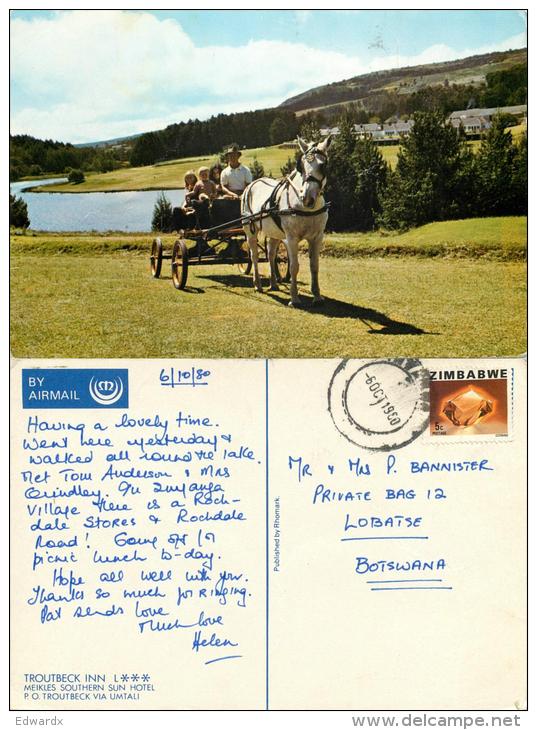 BY
AIRMAIL
6/10/80
Having a lovely time.
Went here yesterday &
walked all round the lake.
Met Tom Anderson & Mrs
Grindley. In Inyanga
Village there is a Roch-
dale Stores & Rochdale
Road! Going off for
picnic lunch to-day.
Hope all well with you.
Thanks so much for ringing.
Pat sends love
Much love
Helen
TROUTBECK INN L***
MEIKLES SOUTHERN SUN HOTEL
P.O. TROUTBECK VIA UMTALI
Published by Rhomark.
-6 OCT 1980
ZIMBABWE
5c
POSTAGE
MR & MRS P. BANNISTER
PRIVATE BAG 12
LOBATSE
BOTSWANA
Edwardx
www.delcampe.net